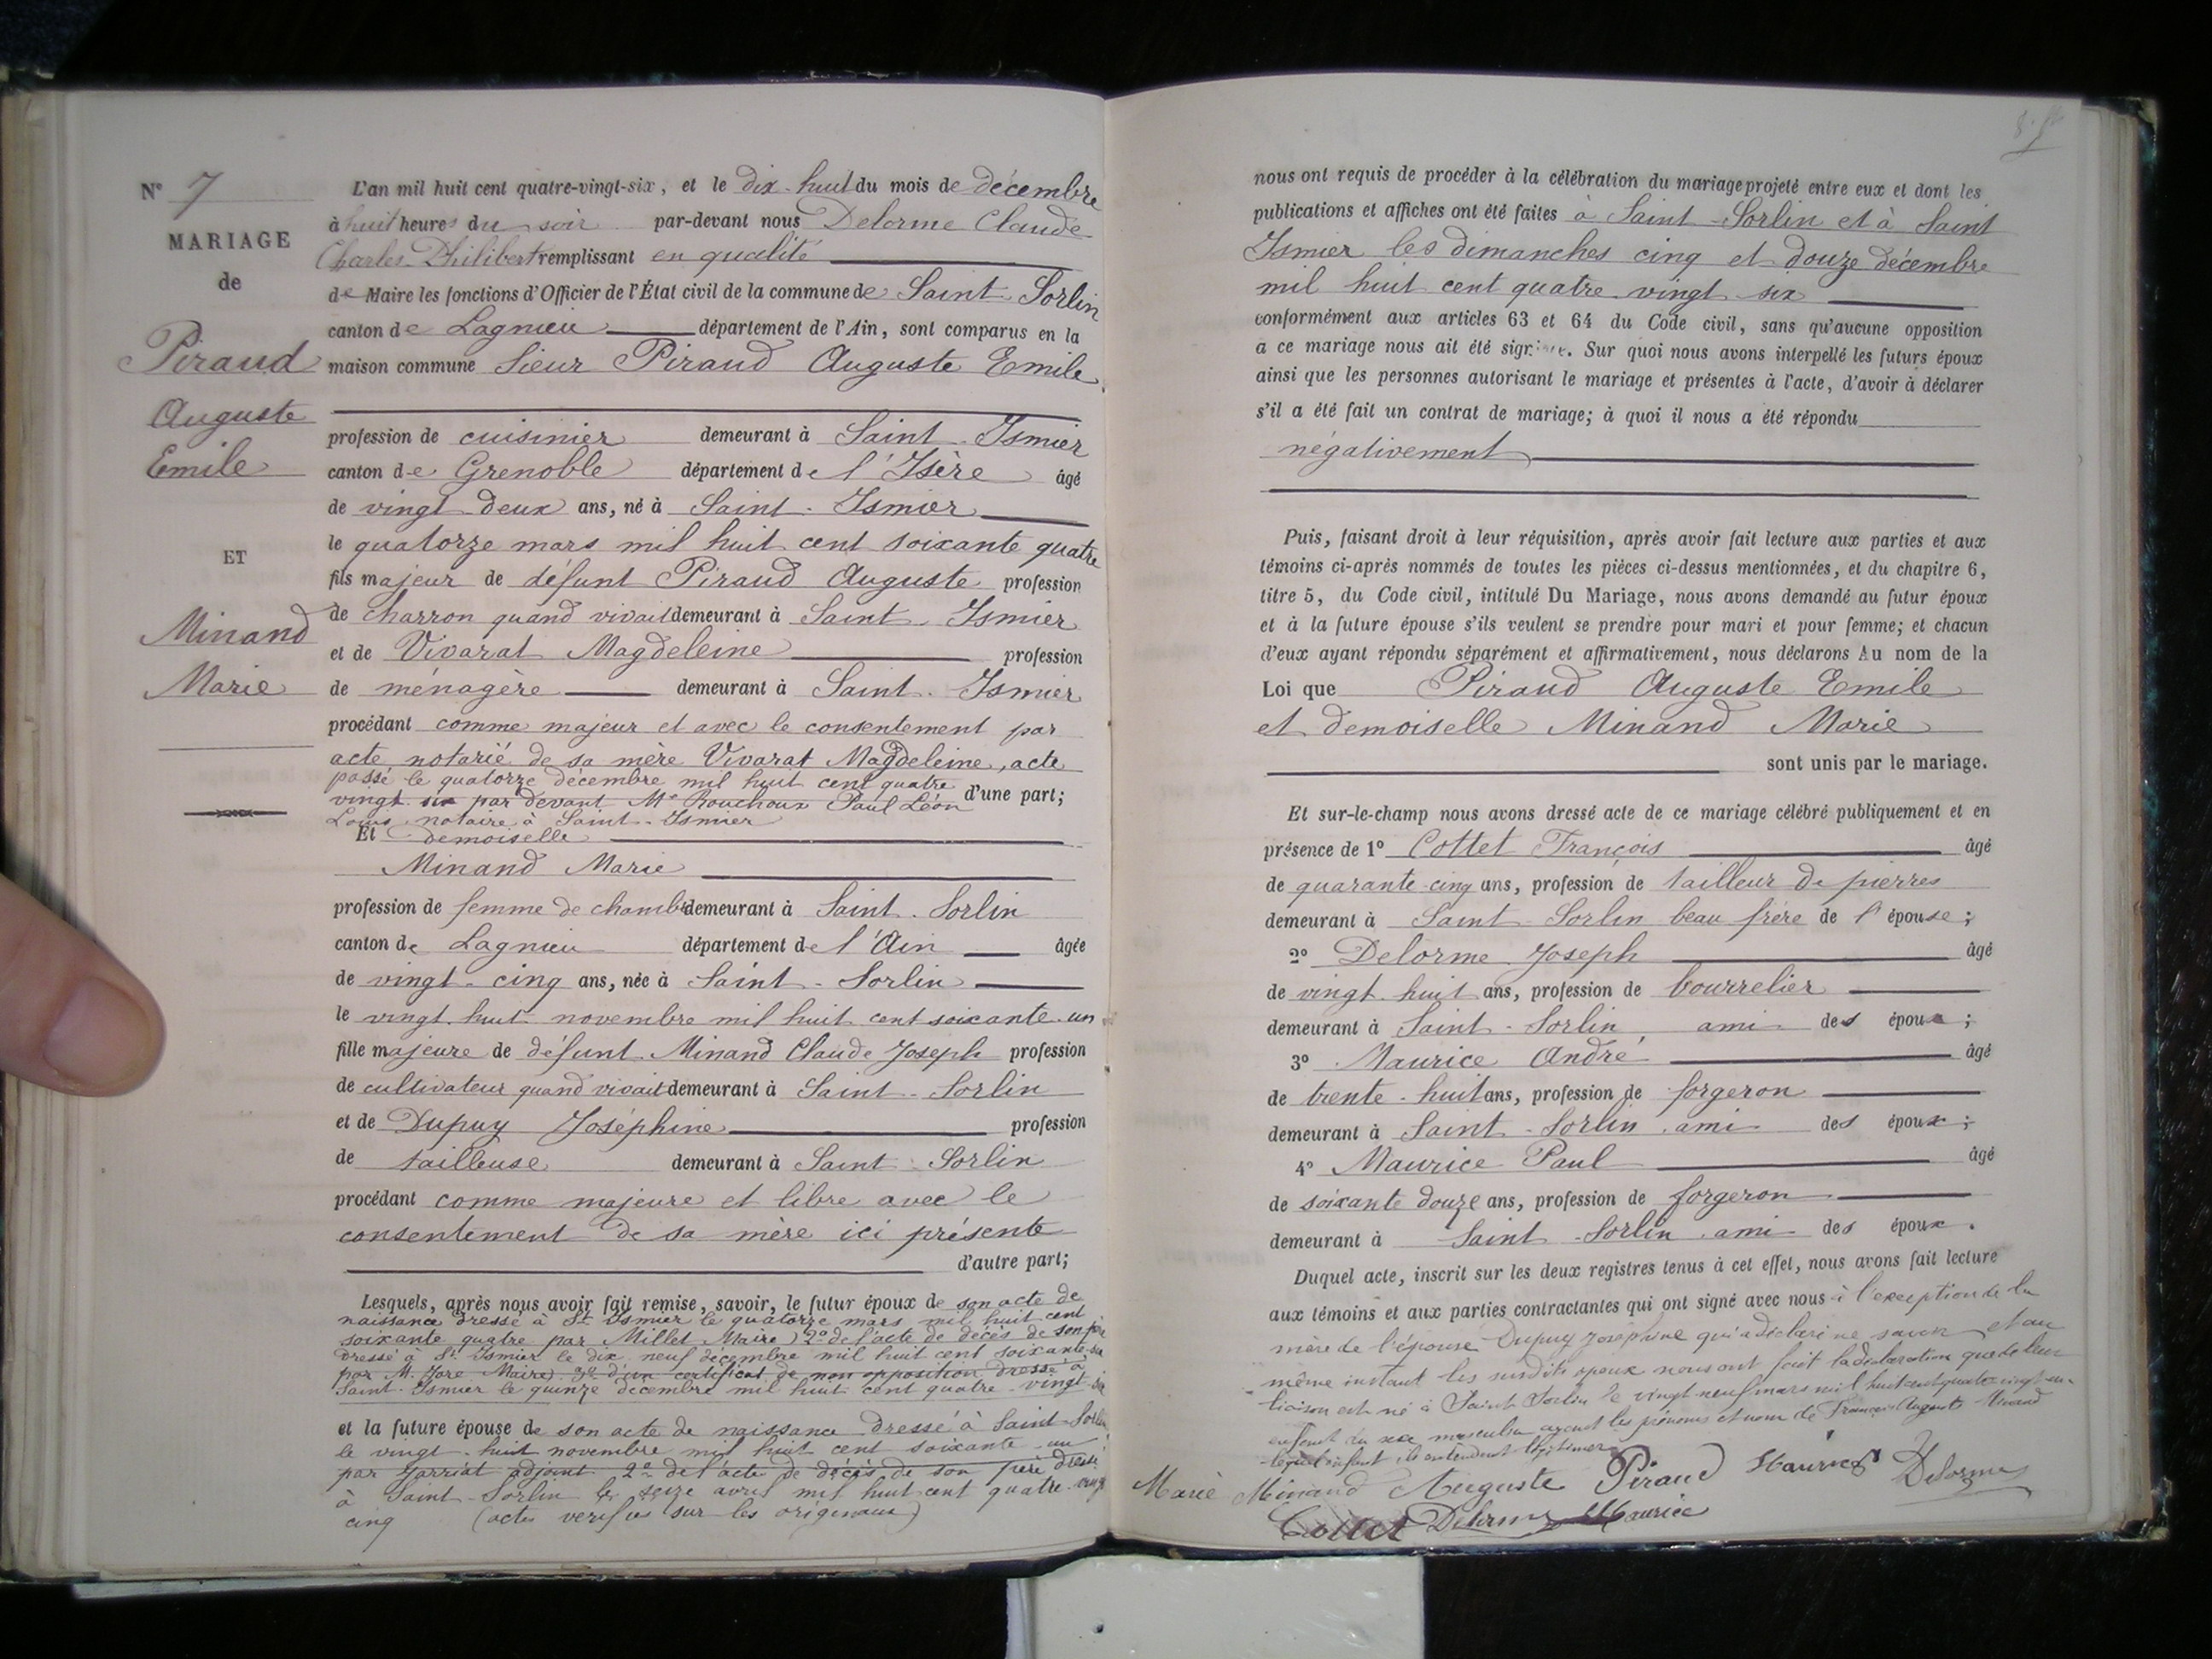 N° 7
MARIAGE
de
Piraud
Auguste
Emile
ET
Minand
Marie
L'an mil huit cent quatre-vingt-six, et le dix-huit du mois de décembre
à huit heures du soir par-devant nous Delorme Claude
Charles Philibert remplissant en qualité
de Maire les fonctions d'Officier de l'État civil de la commune de Saint-Sorlin
canton de Lagnieu département de l'Ain, sont comparus en la
maison commune Sieur Piraud Auguste Emile
profession de cuisinier demeurant à Saint-Ismier
canton de Grenoble département de l'Isère âgé
de vingt-deux ans, né à Saint-Ismier
le quatorze mars mil huit cent soixante quatre
fils majeur de défunt Piraud Auguste profession
de charron quand vivait demeurant à Saint-Ismier
et de Vivarat Magdeleine profession
de ménagère demeurant à Saint-Ismier
procédant comme majeur et avec le consentement par
acte notarié de sa mère Vivarat Magdeleine, acte
passé le quatorze décembre mil huit cent quatre
vingt six par devant Me Rouchoux Paul Léon d'une part;
Louis notaire à Saint-Ismier
Et demoiselle
Minand Marie
profession de femme de chambre demeurant à Saint-Sorlin
canton de Lagnieu département de l'Ain âgée
de vingt-cinq ans, née à Saint-Sorlin
le vingt-huit novembre mil huit cent soixante-un
fille majeure de défunt Minand Claude Joseph profession
de cultivateur quand vivait demeurant à Saint-Sorlin
et de Dupuy Joséphine profession
de tailleuse demeurant à Saint-Sorlin
procédant comme majeure et libre avec le
consentement de sa mère ici présente
d'autre part;
Lesquels, après nous avoir fait remise, savoir, le futur époux de son acte de
naissance dressé à St Ismier le quatorze mars mil huit cent
soixante quatre par Millet Maire 2° de l'acte de décès de son père
dressé à St Ismier le dix neuf décembre mil huit cent soixante-six
par M. Jore Maire 3° d'un certificat de non opposition dressé à
Saint-Ismier le quinze décembre mil huit cent quatre-vingt-six
et la future épouse de son acte de naissance dressé à Saint-Sorlin
le vingt-huit novembre mil huit cent soixante-un
par Jarriat adjoint 2° de l'acte de décès de son père dressé
à Saint-Sorlin le seize avril mil huit cent quatre-vingt
cinq (actes verifiés sur les originaux)
nous ont requis de procéder à la célébration du mariage projeté entre eux et dont les
publications et affiches ont été faites à Saint-Sorlin et à Saint
Ismier les dimanches cinq et douze décembre
mil huit cent quatre-vingt-six
conformément aux articles 63 et 64 du Code civil, sans qu'aucune opposition
a ce mariage nous ait été signifiée. Sur quoi nous avons interpellé les futurs époux
ainsi que les personnes autorisant le mariage et présentes à l'acte, d'avoir à déclarer
s'il a été fait un contrat de mariage; à quoi il nous a été répondu
négativement
Puis, faisant droit à leur réquisition, après avoir fait lecture aux parties et aux
témoins ci-après nommés de toutes les pièces ci-dessus mentionnées, et du chapitre 6,
titre 5, du Code civil, intitulé Du Mariage, nous avons demandé au futur époux
et à la future épouse s'ils veulent se prendre pour mari et pour femme; et chacun
d'eux ayant répondu séparément et affirmativement, nous déclarons Au nom de la
Loi que Piraud Auguste Emile
et demoiselle Minand Marie
sont unis par le mariage.
Et sur-le-champ nous avons dressé acte de ce mariage célébré publiquement et en
présence de 1° Cottet François âgé
de quarante-cinq ans, profession de tailleur de pierres
demeurant à Saint-Sorlin beau frère de l'épouse;
2° Delorme Joseph âgé
de vingt-huit ans, profession de bourrelier
demeurant à Saint-Sorlin ami des époux;
3° Maurice André âgé
de trente-huit ans, profession de forgeron
demeurant à Saint-Sorlin ami des époux;
4° Maurice Paul âgé
de soixante douze ans, profession de forgeron
demeurant à Saint-Sorlin ami des époux.
Duquel acte, inscrit sur les deux registres tenus à cet effet, nous avons fait lecture
aux témoins et aux parties contractantes qui ont signé avec nous à l'exception de la
mère de l'épouse Dupuy Joséphine qui a déclaré ne savoir et au
même instant les susdits époux nous ont fait la déclaration que de leur
liaison est né à Saint Sorlin le vingt-neuf mars mil huit cent quatre vingt-un
enfant du sexe masculin ayant les prénoms et nom de François Auguste Minand
lequel enfant ils entendent légitimer
Marie Minand Auguste Piraud Maurice Delorme
Cottet Delorme Maurice